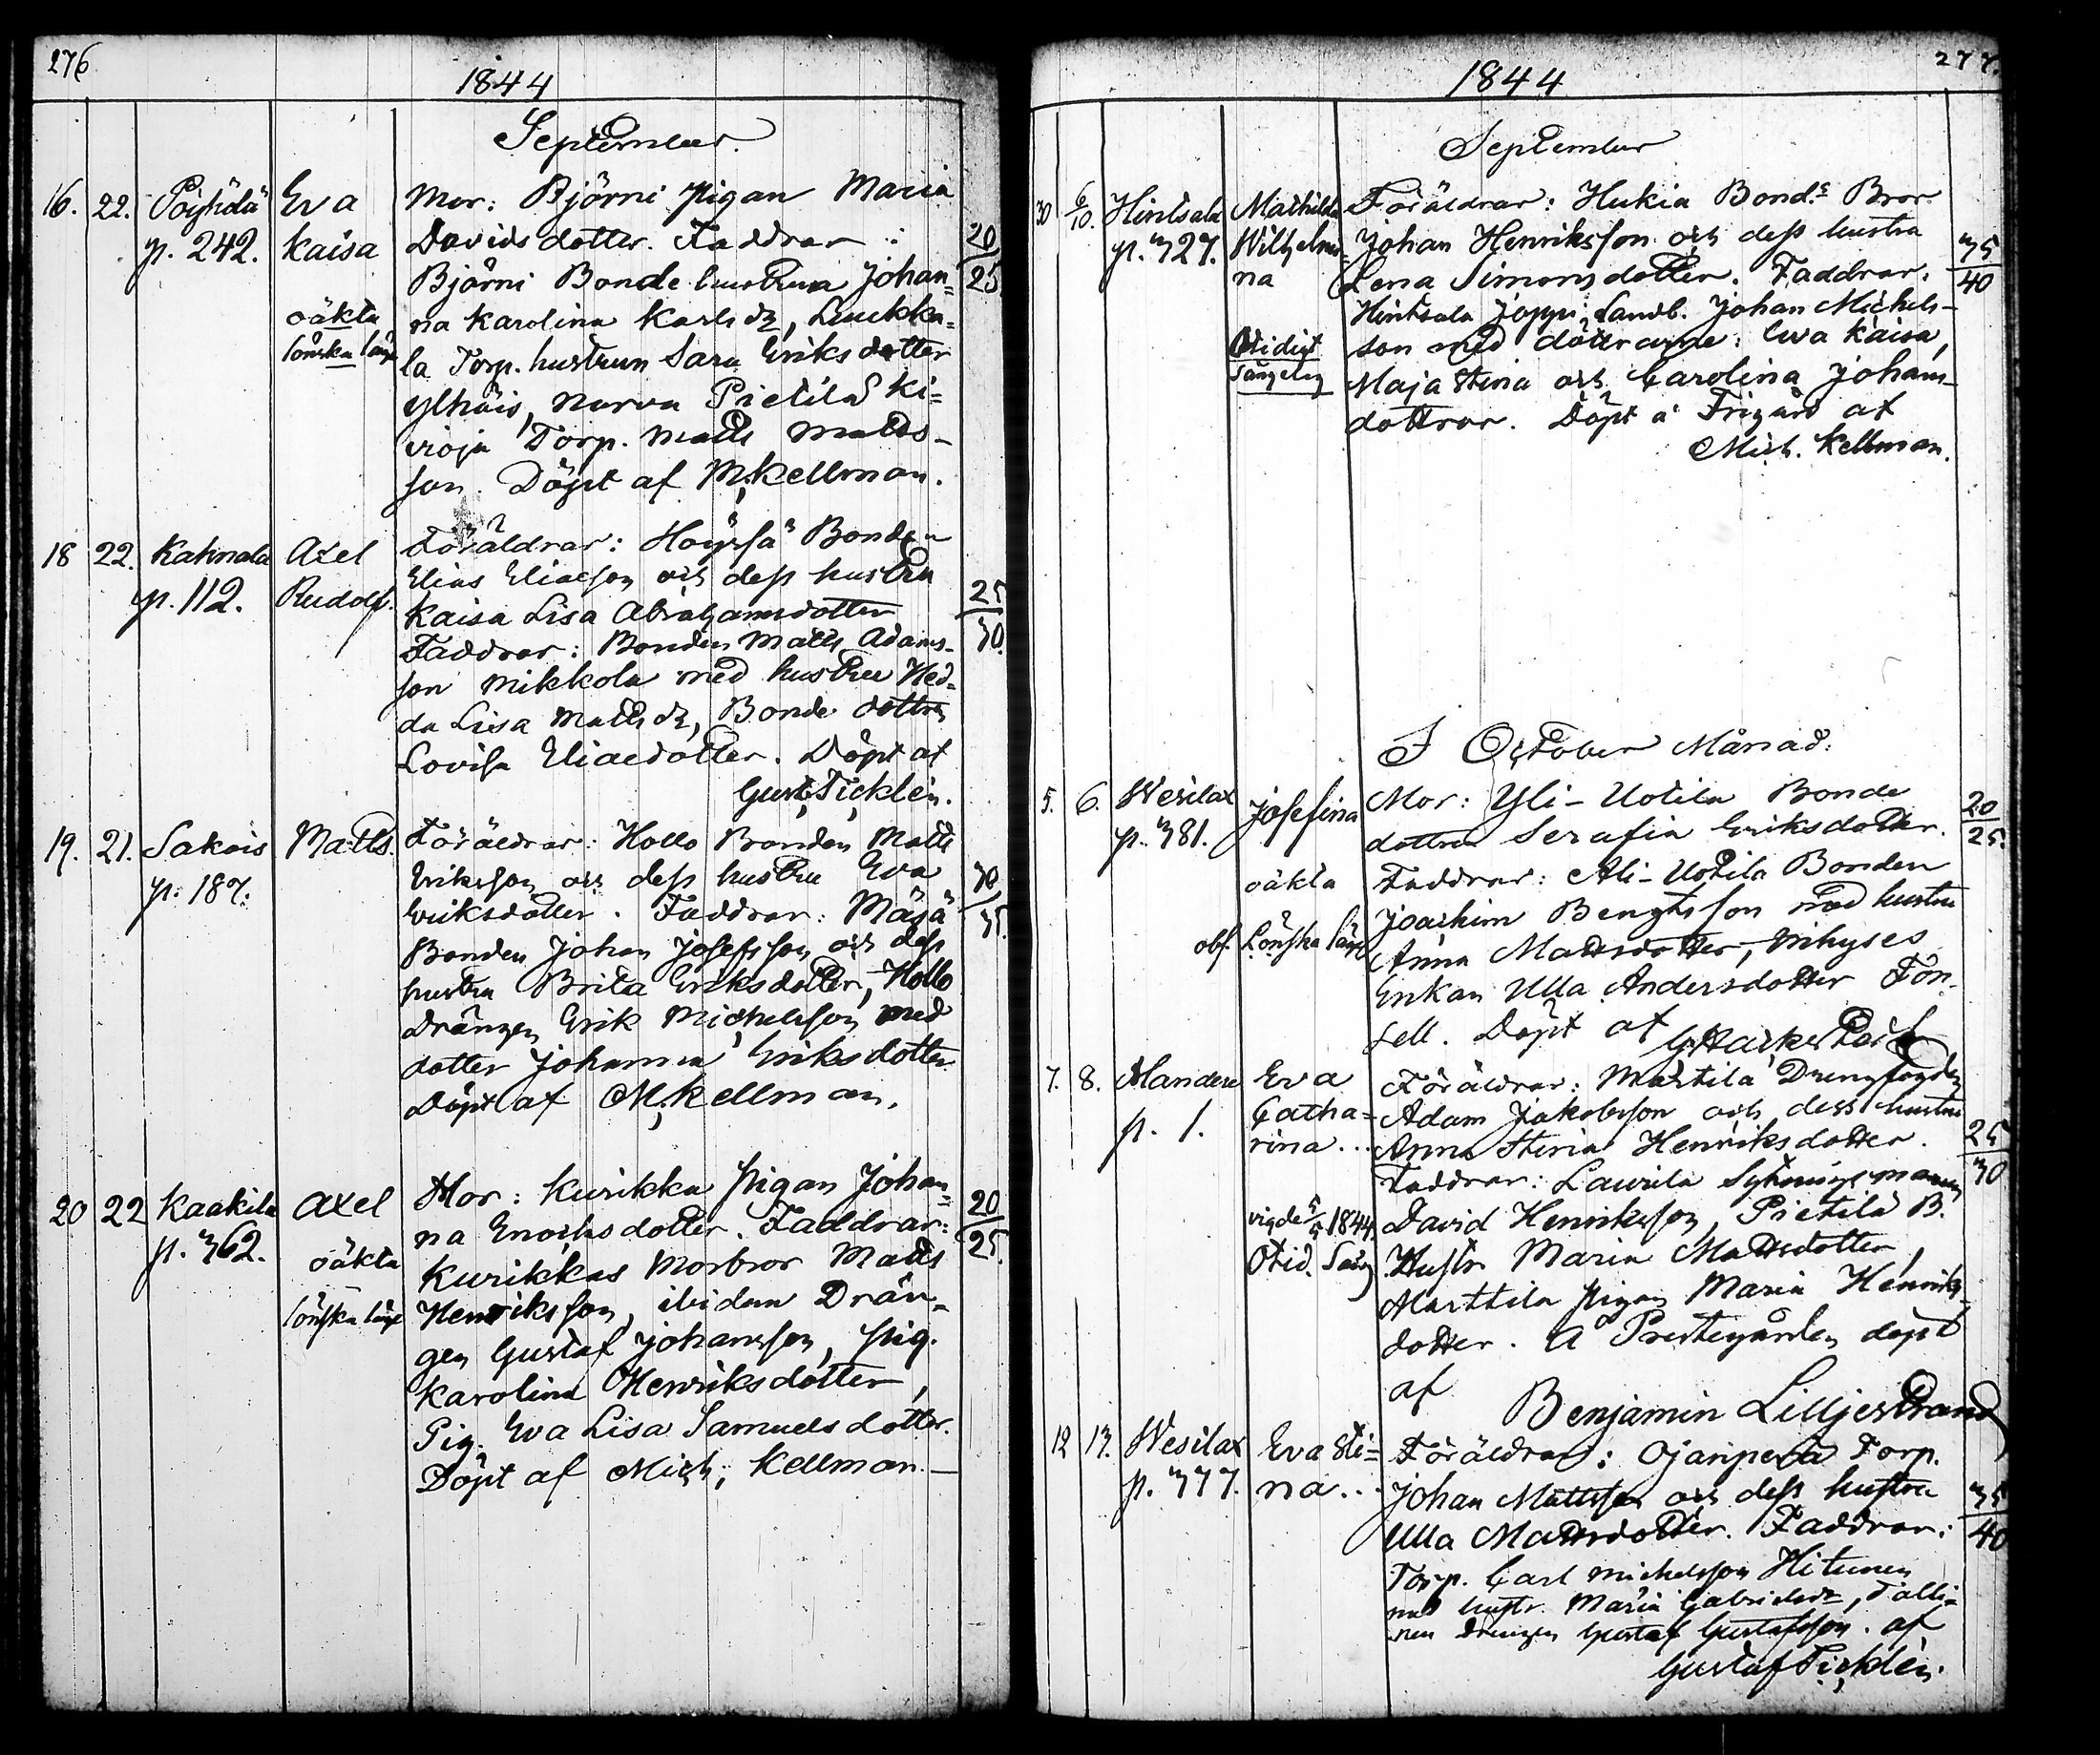 276
1844
September.
16. 22. Pöyhölä Eva Mor: Björni Pigan Maria
p. 242. Kaisa Davidsdotter. Faddrar: 20/25
Björni Bonde hustrun Johan=
oäkta na Karolina Karlsdr, Luukka=
lönska läge la Torp. hustrun Sara Eriksdotter
Ylhäis, Norva Pietilä Ki=
vioja Torp. Matts Matts-
son. Döpt af M. Kellman.
18 22. Kahnala Axel Föräldrar: Höyssä Bonden
p. 112. Rudolf. Elias Eliasson och dess hustru 25/30.
Kaisa Lisa Abrahamsdotter
Faddrar: Bonden Matts Adams-
son Mikkola med hustru Hed=
da Lisa Mattsdr, Bonde dottren
Lovisa Eliaedotter. Döpt af
Gust. Ticklén.
19. 21. Sakois Matts. Föräldrar: Hollo Bonden Matts
p. 187. Eriksson och dess hustru Eva 30/35.
Eriksdotter. Faddrar: Mäsä
Bonden Johan Josefsson och dess
hustru Brita Eriksdotter, Hollo
Drängen Erik Michelsson med
dotter Johanna Eriksdotter
Döpt af M. Kellman.
20 22 Kaakila Axel Mor: Kurikka Pigan Johan= 20/25.
p. 362. na Enochsdotter. Faddrar:
oäkta Kurikkas Morbror Matts
lönska läge Henriksson, ibidem Drän-
gen Gustaf Johansson, Pig.
Karolina Henriksdotter,
Pig. Eva Lisa Samuelsdotter.
Döpt af Mich. Kellman.—
277.
1844
September
30 6/10. Hintsala Mathilda Föräldrar: Hukia Bonds Bror
p. 327. Wilhelmi- Johan Henriksson och dess hustru 35/40
na Lena Simonsdotter. Faddrar:
Hintsala Joppi Landb. Johan Michels-
Otidigt son med döttrarne: Eva Kaisa,
sängelag Maja Stina och Carolina Johans-
dottrar. Döpt å Frigård af
Mich. Kellman.
I October Månad:
5. 6. Wesilax Josefina Mor: Yli-Uotila Bonde 20/25.
p. 381. dottren Serafia Eriksdotter.
oäkta Faddrar: Ali-Uotila Bonden
Joachim Bengtsson med hustru
obs. Lönska läge Anna Mattsdotter, Inhyses
Enkan Ulla Andersdotter Fon-
sell. Döpt af
7. 8. Alandere Eva Föräldrar: Marttila Drengfogden
p. 1. Catha= Adam Jakobsson och dess hustru
rina... Anna Stina Henriksdotter. 25/30
Faddrar: Laurila Sytningsmannen
vigde 5/5 1844. David Henriksson, Pietilä B.
Otid. Säng Hustr. Maria Mattsdotter,
Marttila Pigan Maria Henriks-
dotter. Å Prestegården döpt
af
Benjamin Lilljestrand
12 13. Wesilax Eva Sti= Föräldrar: Ojanperä Torp.
p. 377. na... Johan Mattsson och dess hustru 35/40
Ulla Mattsdotter. Faddrar:
Torp. Carl Michelsson Hitunen
med hustr. Maria Gabrielsdr, Talli-
nen Drengen Gustaf Gustafsson. af
Gustaf Ticklén.